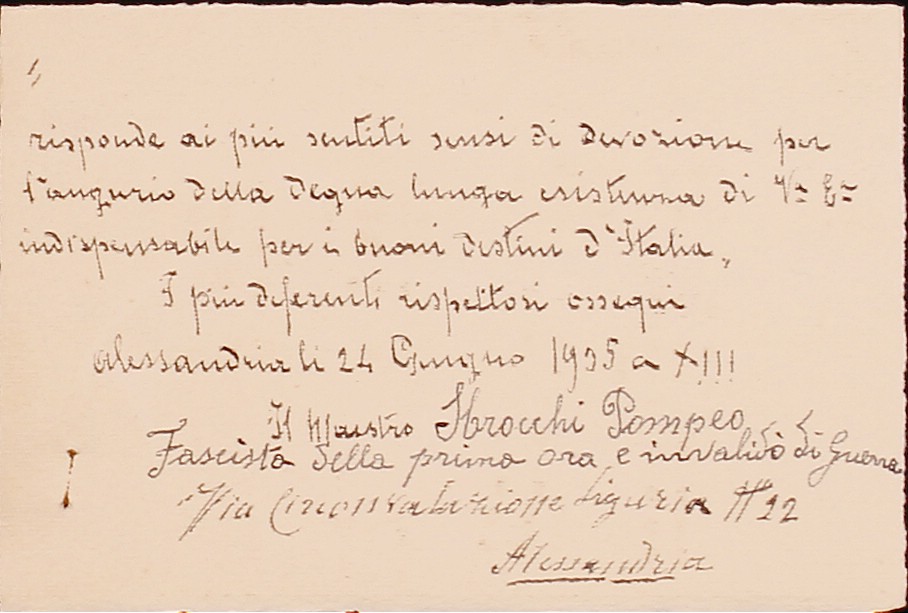 risponde ai più sentiti sensi di devozione per
l'augurio della degna lunga esistenza di Va Ea
indispensabile per i buoni destini d'Italia,
I più diferenti rispettosi ossequi
Alessandria li 24 Giugno 1935 a XIII
Il Maestro Pompeo
Fascista della prima ora e invalido di Guerra
Via Circonvalazione Liguria N 22
Alessandria